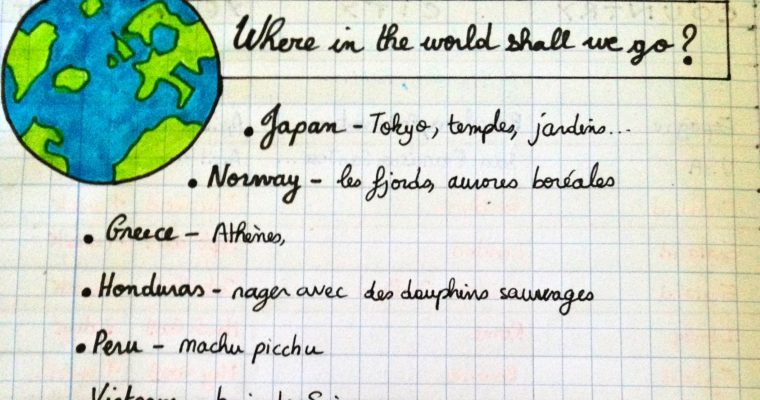 Where in the world shall we go?
• Japan - Tokyo, temples, jardins...
• Norway - les fjords, aurores boréales
• Greece - Athènes,
• Honduras - nager avec des dauphins sauvages
• Peru - machu picchu